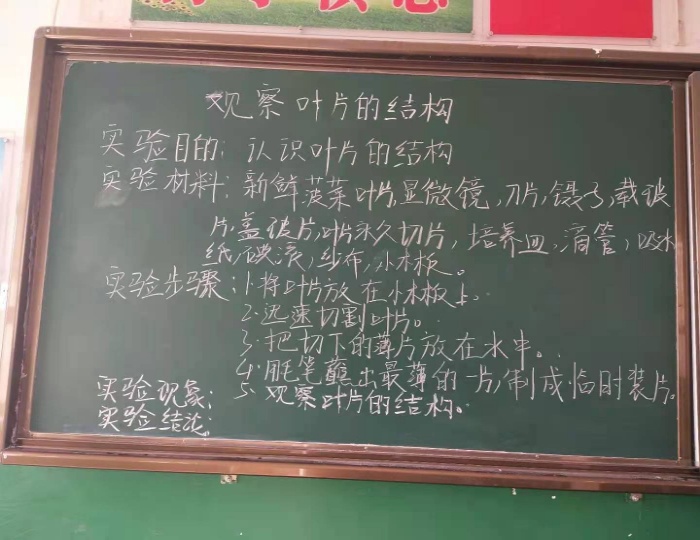 观察叶片的结构
实验目的:认识叶片的结构
实验材料:新鲜菠菜叶片,显微镜,刀片,镊子,载玻
片,盖玻片,叶片永久切片,培养皿,滴管,吸水
纸,碘液,纱布,小木板。
实验步骤:1·将叶片放在小木板上。
2·迅速切割叶片。
3·把切下的薄片放在水中。
4·用毛笔蘸出最薄的一片,制成临时装片。
5·观察叶片的结构。
实验现象:
实验结论: